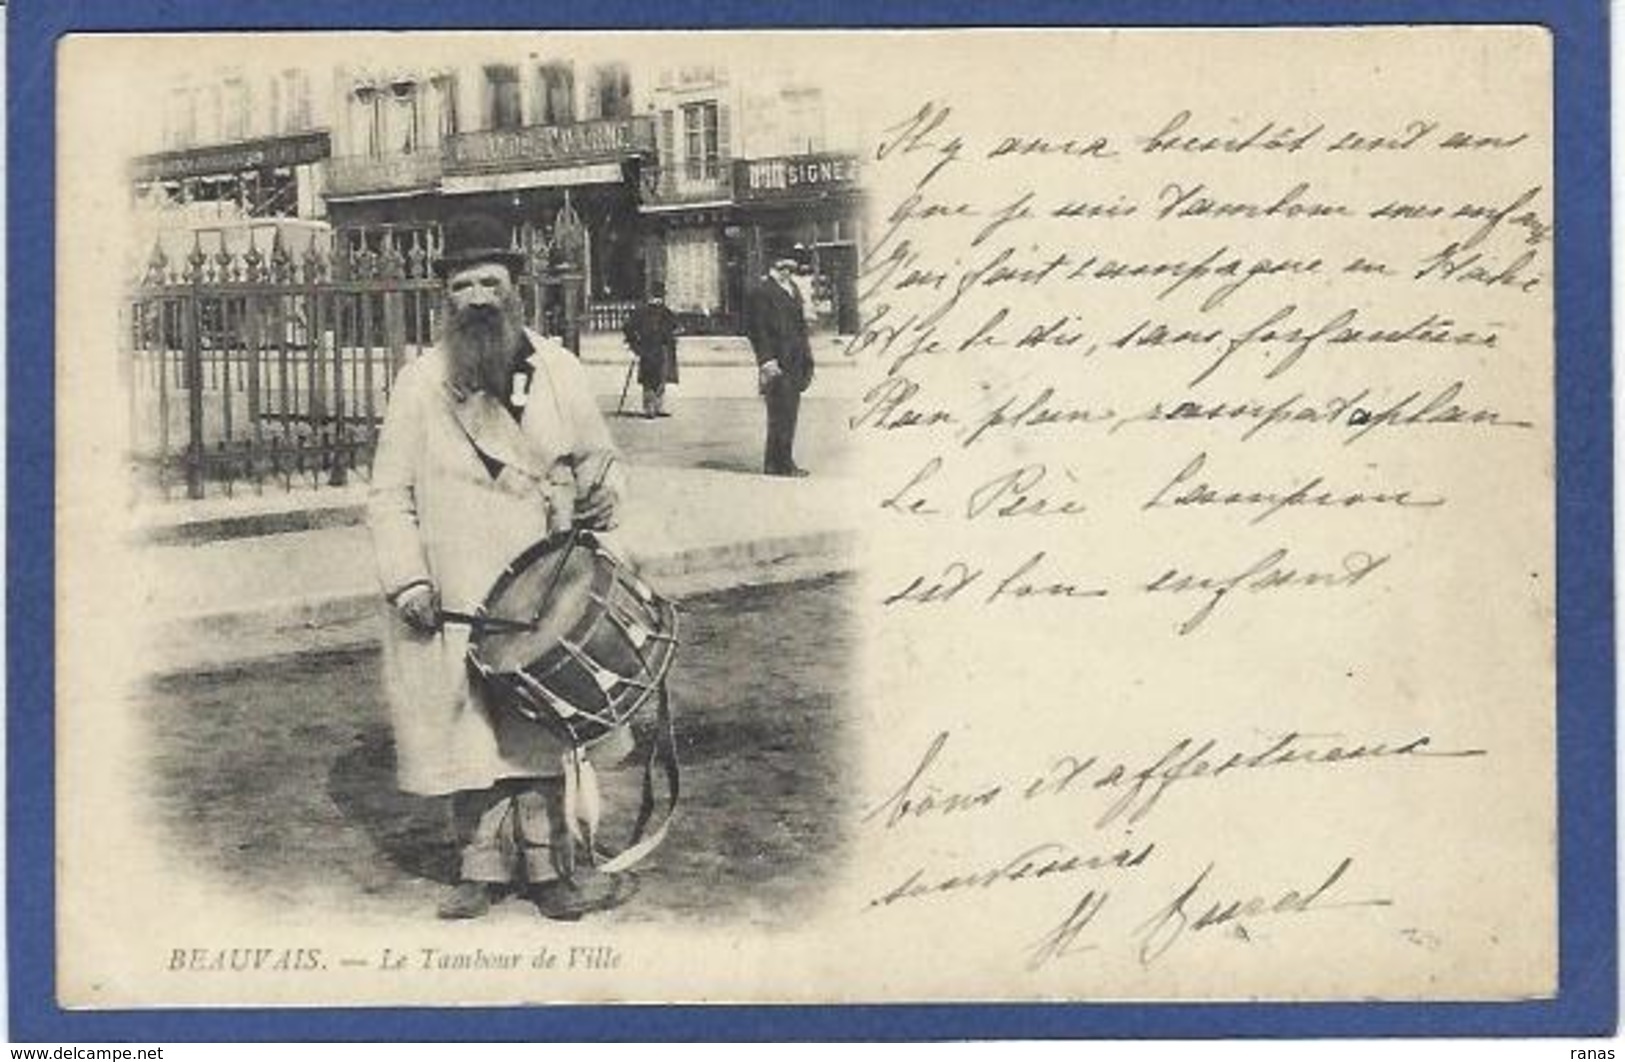 SIGNE
Il y aura bientôt cent ans
que je suis Tambour mes enfants
J'ai fait campagne en Italie
Et je le dis, sans forfanterie
Plan, plan, rampataplan
Le Père Lampion
est bon enfant
bons et affectueux
souvenirs
H
BEAUVAIS. — Le Tambour de Ville
www.delcampe.net
ranas